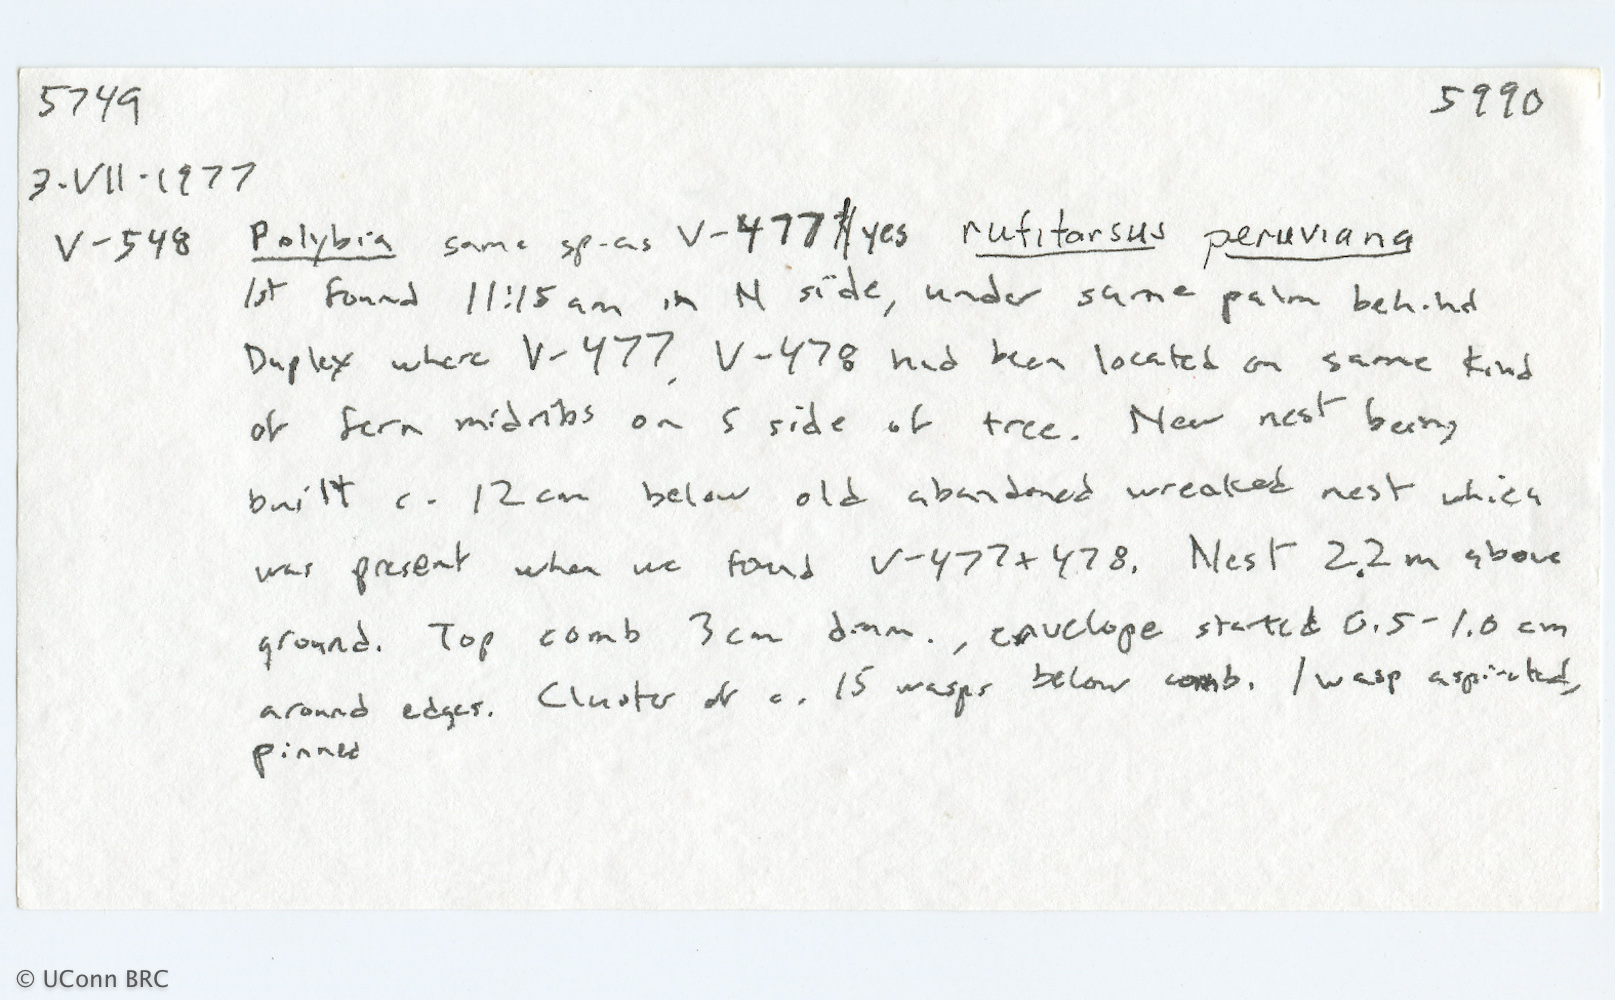 5749 5990
3·VII·1977
V-548 Polybia same sp. as V-477 yes rufitarsus peruviana
1st found 11:15 am in N side, under same palm behind
Duplex where V-477, V-478 had been located on same kind
of fern midribs on S side of tree. New nest being
built c. 12 cm below old abandoned wreaked nest which
was present when we found V-477+478. Nest 2.2 m above
ground. Top comb 3 cm diam., envelope started 0.5-1.0 cm
around edges. Cluster of c. 15 wasps below comb. 1 wasp aspirated,
pinned
© UConn BRC